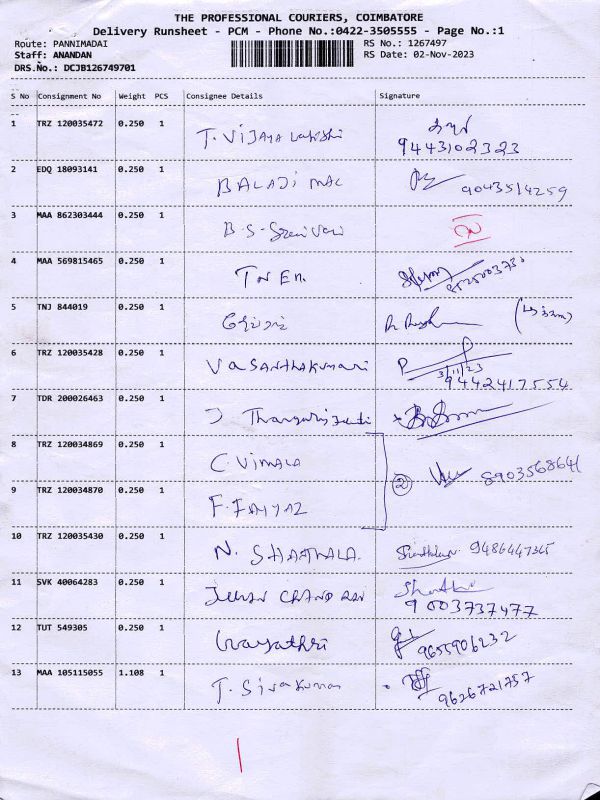 THE PROFESSIONAL COURIERS, COIMBATORE
Delivery Runsheet - PCM - Phone No.:0422-3505555 - Page No.:1
Route: PANNIMADAI RS No.: 1267497
Staff: ANANDAN RS Date: 02-Nov-2023
DRS.No.: DCJB126749701
S No Consignment No Weight PCS Consignee Details Signature
1 TRZ 120035472 0.250 1 T. VIJAYA Lakshi
9443102323
2 EDQ 18093141 0.250 1 BALAJI MAC 9043514259
3 MAA 862303444 0.250 1 B-S-
4 MAA 569815465 0.250 1 TN EM.
5 TNJ 844019 0.250 1
6 TRZ 120035428 0.250 1 VASANTHAKUMARI P
3/11/23
9442417554
7 TDR 200026463 0.250 1 J
8 TRZ 120034869 0.250 1 C. VIMALA
② 8903568641
9 TRZ 120034870 0.250 1 F. FAIYAZ
10 TRZ 120035430 0.250 1 N. SHANTHALA. 9486447365
11 SVK 40064283 0.250 1 CHAND
9003737477
12 TUT 549305 0.250 1 Gayathri 9655906232
13 MAA 105115055 1.108 1 T. Sivakumar
9626721757